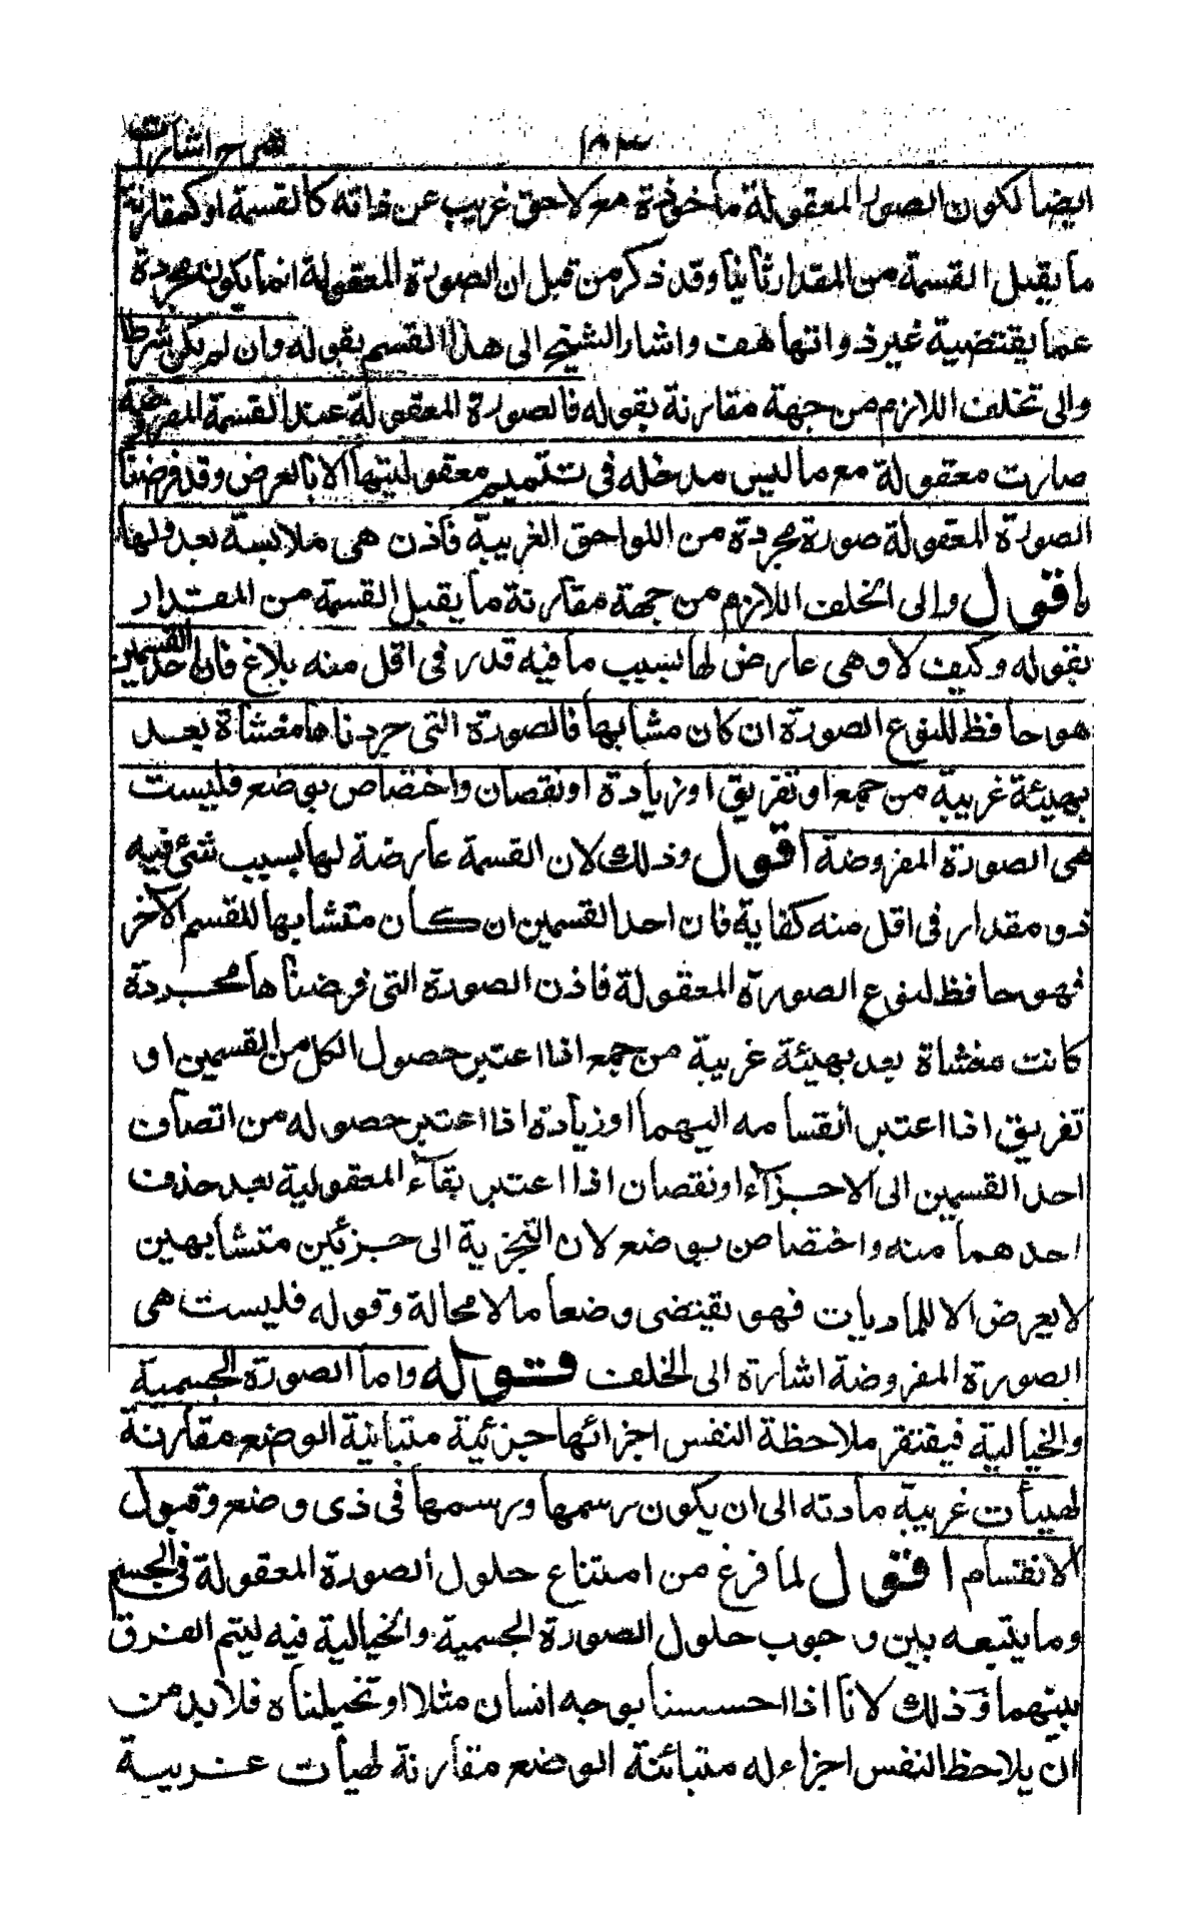 ١٨٣ شرح اشارات
ايضا لكون الصور المعقولة مأخوذة مع لاحق غريب عن ذاته كالقسمة او كمقارنة
ما يقبل القسمة من المقدار ثانيا وقد ذكر من قبل ان الصورة المعقولة انما يكون مجردة
عما يقتضيه غير ذواتها هف واشار الشيخ الى هذا القسم بقوله وان لم يكن شرطا
والى تخلف اللازم من جهة مقارنة بقوله فالصورة المعقولة عند القسمة المفروضة
صارت معقولة مع ما ليس مدخله فى تتميم معقوليتها الا بالعرض وقد فرضنا
الصورة المعقولة صورة مجردة من اللواحق الغريبة فاذن هى ملابسة بعد لها
اقول والى الخلف اللازم من جهة مقارنة ما يقبل القسمة من المقدار
بقوله وكيف لا وهى عارض لها بسبب ما فيه قدر فى اقل منه بلاغ فان احد القسمين
هو حافظ للنوع الصورة ان كان مشابها فالصورة التى جردناها مغشاة بعد
بهيئة غريبة من جمع او تفريق او زيادة او نقصان واختصاص بوضع فليست
هى الصورة المفروضة اقول وذلك لان القسمة عارضة لها بسبب شئ فيه
ذو مقدار فى اقل منه كفاية فان احد القسمين ان كان متشابها للقسم الآخر
فهو حافظ لنوع الصورة المعقولة فاذن الصورة التى فرضناها مجردة
كانت مغشاة بعد بهيئة غريبة من جمع اذا اعتبر حصول الكل من القسمين او
تفريق اذا اعتبر انقسامه اليهما او زيادة اذا اعتبر حصوله من اتصاف
احد القسمين الى الاجزاء او نقصان اذا اعتبر بقاء المعقولية بعد حذف
احدهما منه واختصاص بوضع لان التجزية الى جزئين متشابهين
لا يعرض الا للماديات فهو يقتضى وضعا ما لا محالة وقوله فليست هى
الصورة المفروضة اشارة الى الخلف قوله واما الصورة الجسمية
والخيالية فيفتقر ملاحظة النفس اجزائها جزئية متباينة الوضع مقارنة
لهيأت غريبة مادته الى ان يكون رسمها ورسمها فى ذى وضع وقبول
الانقسام اقول لما فرغ من امتناع حلول الصورة المعقولة فى الجسم
وما يتبعه بين وجوب حلول الصورة الجسمية والخيالية فيه ليتم الفرق
بينهما وذلك لانا اذا احسسنا بوجه انسان مثلا او تخيلناه فلا بد من
ان يلاحظ النفس اجزاء له متبائنة الوضع مقارنة لهيأت غريبة